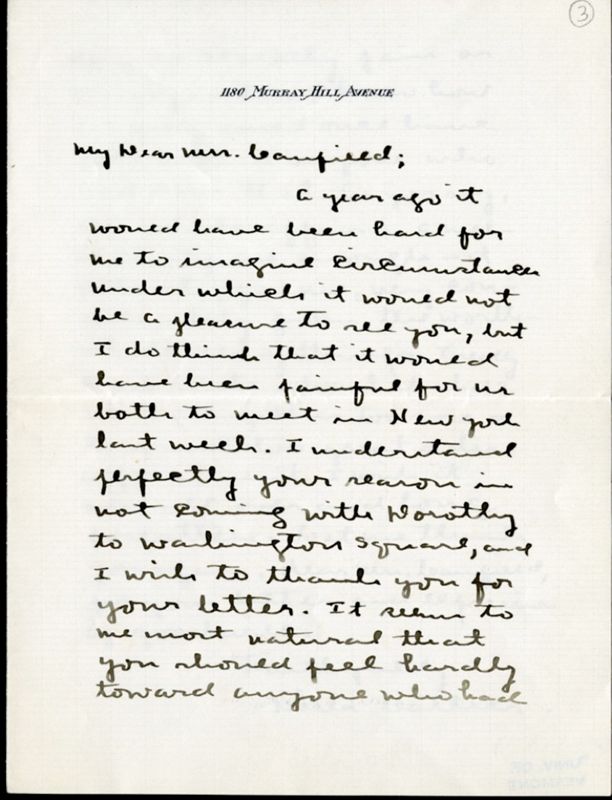 3
1180 MURRAY HILL AVENUE
My Dear Mrs. Canfield;
A year ago it
would have been hard for
me to imagine circumstances
under which it would not
be a pleasure to see you, but
I do think that it would
have been painful for us
both to meet in New York
last week. I understand
perfectly your reason in
not coming with Dorothy
to Washington Square, and
I wish to thank you for
your letter. It seems to
me most natural that
you should feel hardly
toward anyone who had